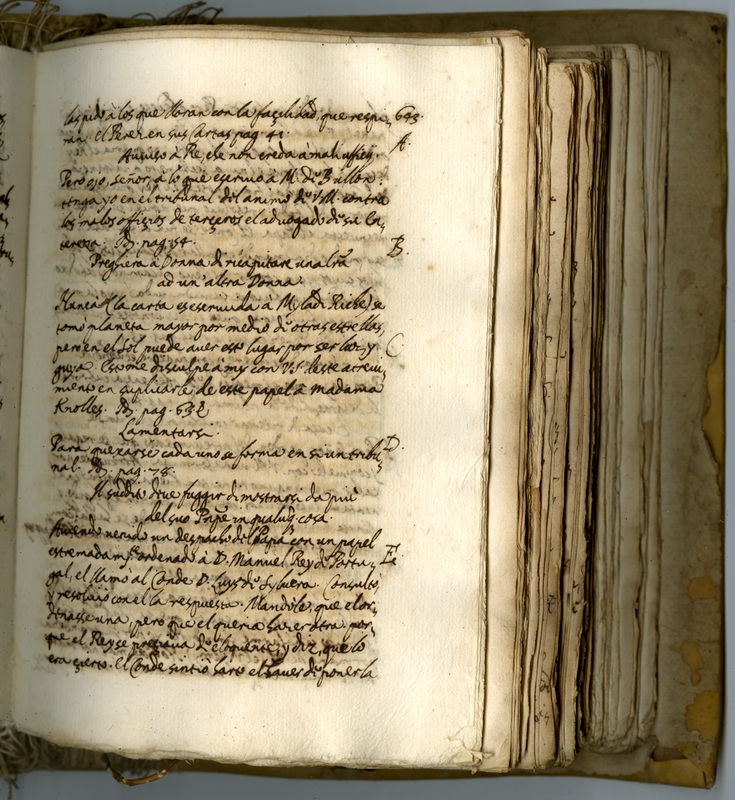 las pido à los que lloran con la façilidad, que respi, 643.
ran. el Perez en sus Cartas pag. 41.
A.
Auuiso à Re, che non creda à mali ufficij.
Pero ojo, señor, à lo que escriuio à M. de
tenga yo en el tribunal del animo de V.M. contra
los malos offiçios de terçeros el aduogado de su En,
tereza. Ib. pag. 54.
B.
Preghiera à Donna di ricapitare una lrã
ad un'altra Donna.
Nunca (la carta es escriuida à My ladi Riche) se
tomò planeta major por medio de otras estrellas,
pero en el Sol puede auer esto lugar por ser luz, y
C.
guya. Esto me disculpe à my con V.S. deste atreui,
miento en suplicarle de este papel à Madama
Knolles. Ib. pag. 63
Lamentarsi.
D.
Para quexarse cada uno se forma en si un tribu,
nal. Ib. pag. 78.
Il suddito deue fuggir di mostrarsi da più
del suo Prñpe in qualunq. cosa.
Auiendo uenido un despacho del Papa con un papel
E.
estremadam.te ordenado à D. Manuel Rey de Portu,
gal, el llamò al Conde D. Luys de Syluera. Consultò,
y resoluiò con el la respuesta. Mandòle, que el or,
denasse una, pero que el queria hazer otra. por,
que el Rey se preçiaua de eloquente; y diz, que lo
era çierto. El Conde sintiò harto el hauer de poner la